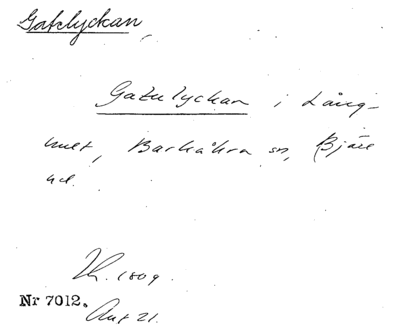 Gatelyckan,
Gatulyckan i Lång-
hult, Barkåkra sn, Bjäre
hd.
Th. 1809.
Nr 7012.
Aut 21.